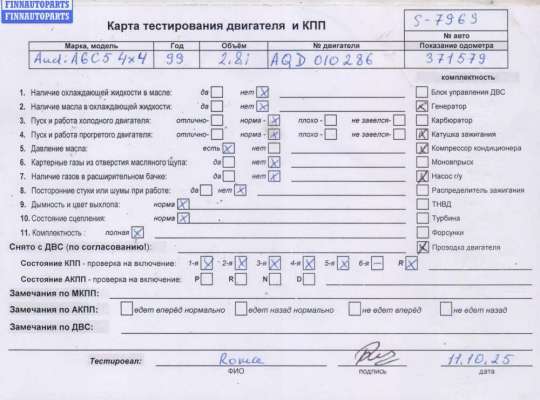 FINNAUTOPARTS
FINNAUTOPARTS
Карта тестирования двигателя и КПП
S-7969
№ авто
Марка, модель Год Объём № двигателя Показание одометра
Audi A6C5 4x4 99 2.8i AQD 010286 371579
комплектность
1. Наличие охлаждающей жидкости в масле: да нет Блок управления ДВС
2. Наличие масла в охлаждающей жидкости: да нет Генератор
3. Пуск и работа холодного двигателя: отлично- норма - плохо- не завелся- Карбюратор
4. Пуск и работа прогретого двигателя: отлично- норма - плохо - не завелся- Катушка зажигания
5. Давление масла: есть нет Компрессор кондиционера
6. Картерные газы из отверстия масляного щупа: да нет Моновпрыск
7. Наличие газов в расширительном бачке: да нет Насос г/у
8. Посторонние стуки или шумы при работе: да нет Распределитель зажигания
9. Дымность и цвет выхлопа: норма ТНВД
10. Состояние сцепления: норма Турбина
11. Комплектность : полная Форсунки
Снято с ДВС (по согласованию!): Проводка двигателя
Состояние КПП - проверка на включение: 1-я 2-я 3-я 4-я 5-я 6-я R
Состояние АКПП - проверка на включение: P R N D
Замечания по МКПП:
Замечания по АКПП: едет вперёд нормально едет назад нормально не едет вперёд не едет назад
Замечания по ДВС:
Тестировал: Roma 11.10.25
ФИО подпись дата